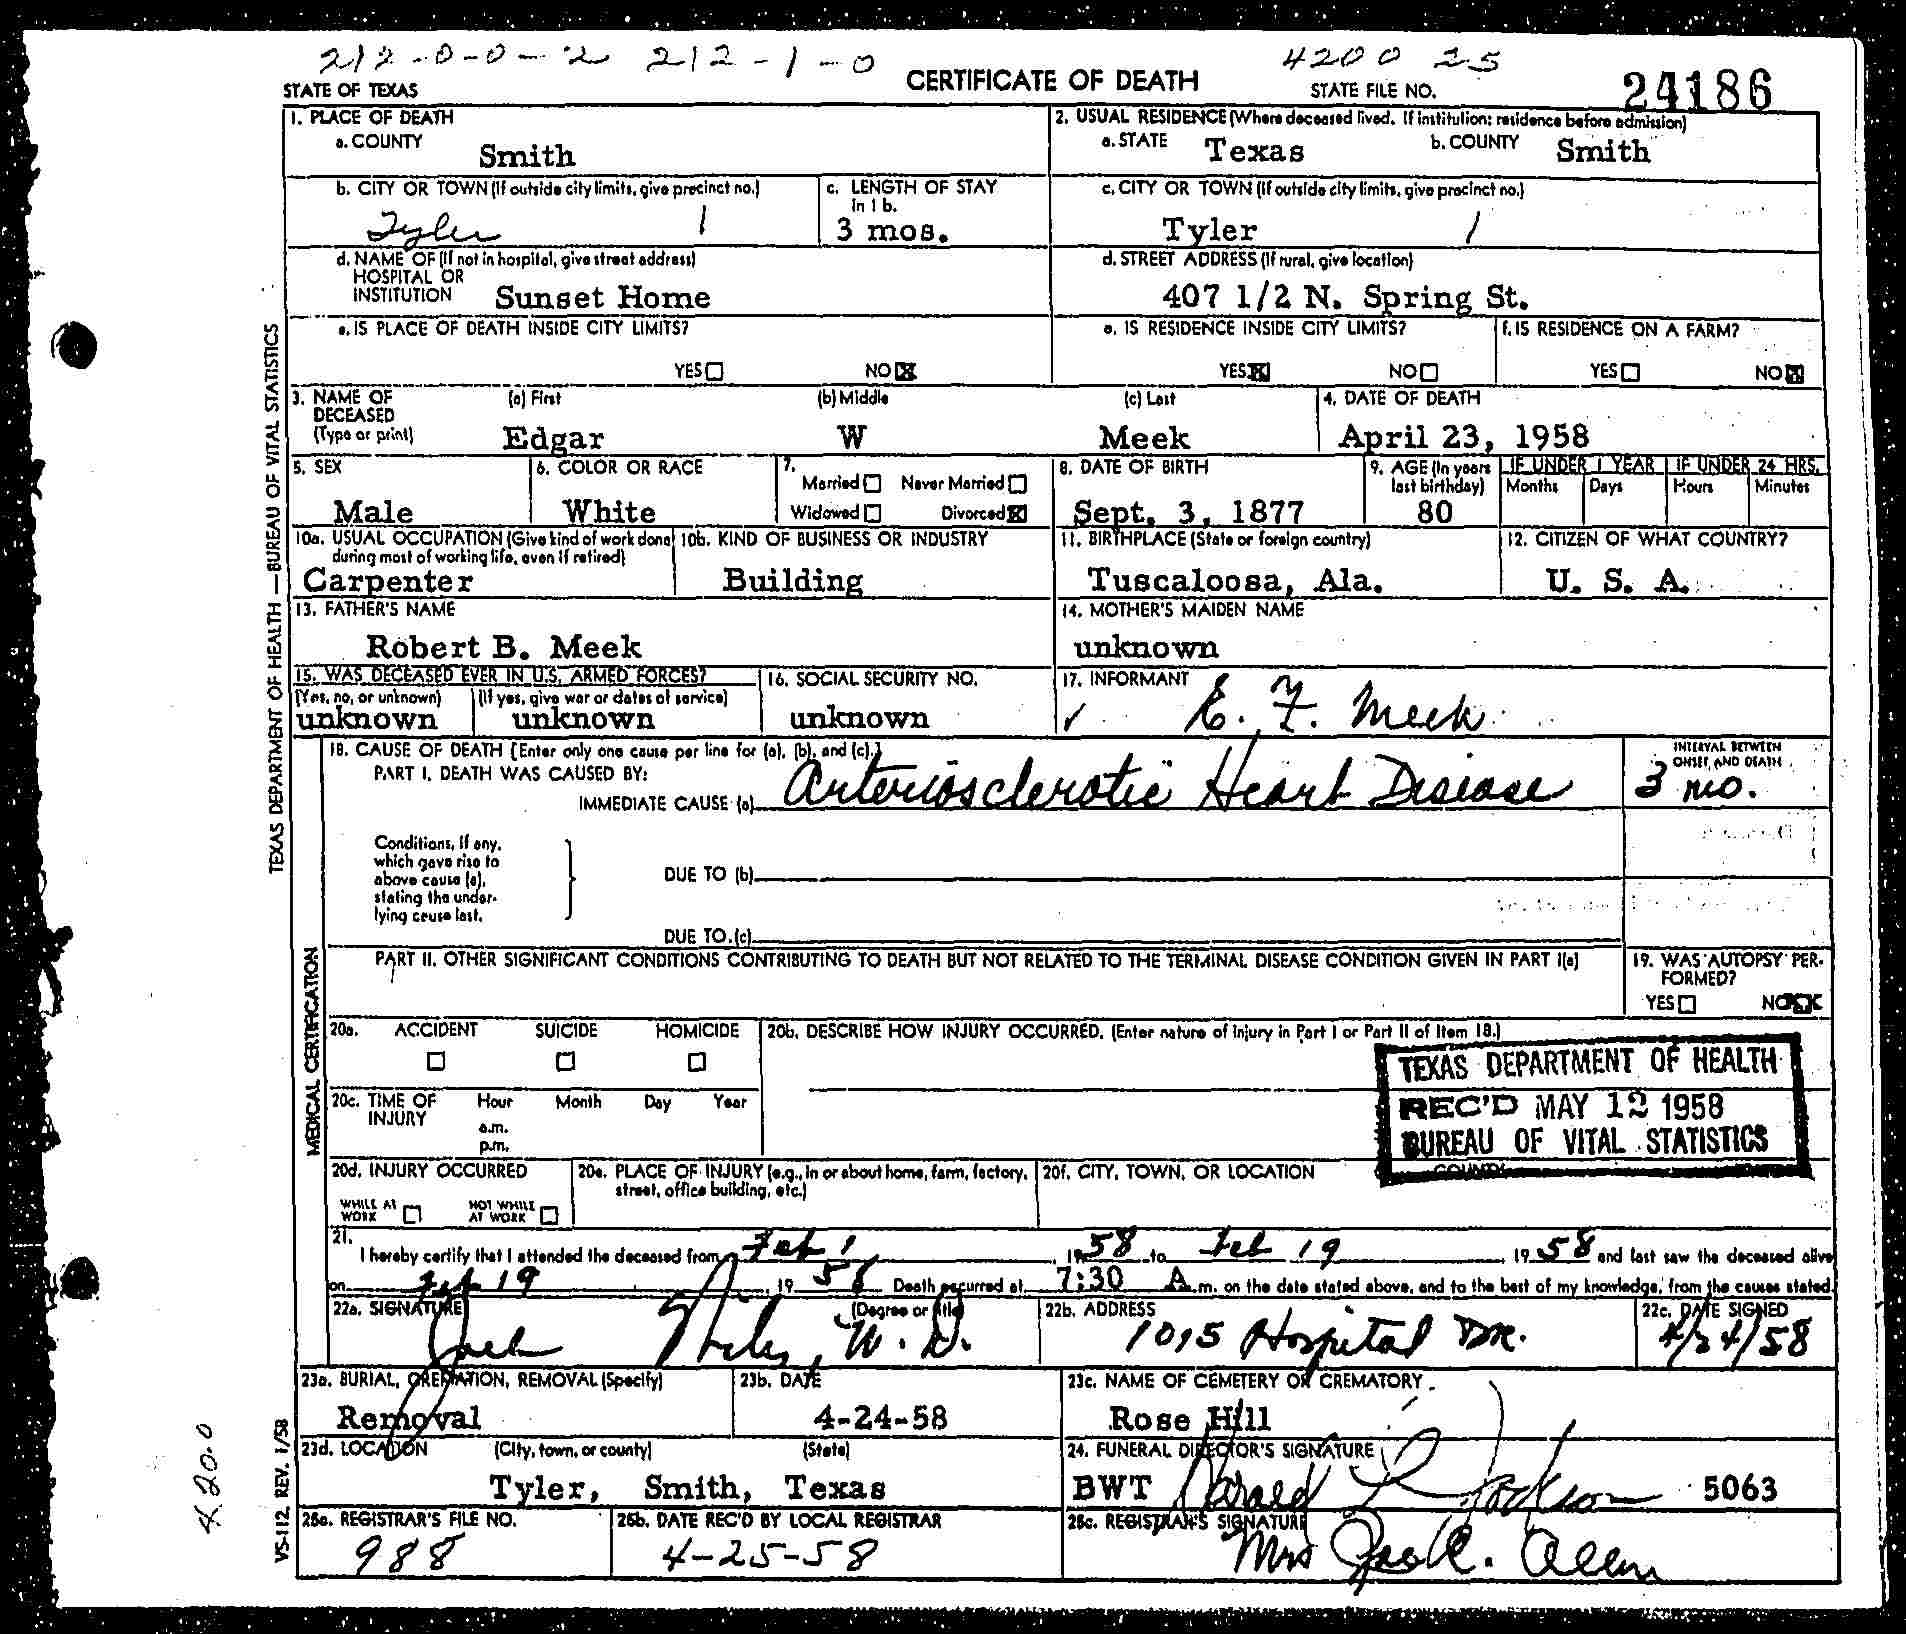 212-0-0-2 212-1-0
4200 25
STATE OF TEXAS
CERTIFICATE OF DEATH
STATE FILE NO. 24186
1. PLACE OF DEATH
a. COUNTY Smith
2. USUAL RESIDENCE (Where deceased lived. If institution: residence before admission)
a. STATE Texas b. COUNTY Smith
b. CITY OR TOWN (If outside city limits, give precinct no.)
Tyler 1
c. LENGTH OF STAY
In 1 b.
3 mos.
c. CITY OR TOWN (If outside city limits, give precinct no.)
Tyler 1
d. NAME OF (If not in hospital, give street address)
HOSPITAL OR
INSTITUTION Sunset Home
d. STREET ADDRESS (If rural, give location)
407 1/2 N. Spring St.
e. IS PLACE OF DEATH INSIDE CITY LIMITS?
YES☐ NO☒
e. IS RESIDENCE INSIDE CITY LIMITS?
YES☒ NO☐
f. IS RESIDENCE ON A FARM?
YES☐ NO☒
3. NAME OF
DECEASED
(Type or print)
(a) First (b) Middle (c) Last
Edgar W Meek
4. DATE OF DEATH
April 23, 1958
5. SEX
Male
6. COLOR OR RACE
White
7.
Married☐ Never Married☐
Widowed☐ Divorced☒
8. DATE OF BIRTH
Sept. 3, 1877
9. AGE (In years
last birthday)
80
IF UNDER 1 YEAR
Months Days
IF UNDER 24 HRS.
Hours Minutes
10a. USUAL OCCUPATION (Give kind of work done
during most of working life, even if retired)
Carpenter
10b. KIND OF BUSINESS OR INDUSTRY
Building
11. BIRTHPLACE (State or foreign country)
Tuscaloosa, Ala.
12. CITIZEN OF WHAT COUNTRY?
U. S. A.
13. FATHER'S NAME
Robert B. Meek
14. MOTHER'S MAIDEN NAME
unknown
15. WAS DECEASED EVER IN U.S. ARMED FORCES?
(Yes, no, or unknown) (If yes, give war or dates of service)
unknown unknown
16. SOCIAL SECURITY NO.
unknown
17. INFORMANT
✓ E. F. Meek
18. CAUSE OF DEATH [Enter only one cause per line for (a), (b), and (c).]
PART I. DEATH WAS CAUSED BY:
IMMEDIATE CAUSE (a) Arteriosclerotic Heart Disease
INTERVAL BETWEEN
ONSET AND DEATH
3 mo.
Conditions, if any,
which gave rise to
above cause (a),
stating the under-
lying cause last.
DUE TO (b)
DUE TO (c)
PART II. OTHER SIGNIFICANT CONDITIONS CONTRIBUTING TO DEATH BUT NOT RELATED TO THE TERMINAL DISEASE CONDITION GIVEN IN PART I(a)
19. WAS AUTOPSY PER-
FORMED?
YES☐ NO☒
20a. ACCIDENT SUICIDE HOMICIDE
☐ ☐ ☐
20b. DESCRIBE HOW INJURY OCCURRED. (Enter nature of injury in Part I or Part II of Item 18.)
20c. TIME OF
INJURY
Hour Month Day Year
a.m.
p.m.
TEXAS DEPARTMENT OF HEALTH
REC'D MAY 12 1958
BUREAU OF VITAL STATISTICS
20d. INJURY OCCURRED
WHILE AT
WORK ☐
NOT WHILE
AT WORK ☐
20e. PLACE OF INJURY (e.g., in or about home, farm, factory,
street, office building, etc.)
20f. CITY, TOWN, OR LOCATION COUNTY
21.
I hereby certify that I attended the deceased from Feb 1, 1958 to Feb 19, 1958 and last saw the deceased alive
on Feb 19, 1958 Death occurred at 7:30 A.m. on the date stated above, and to the best of my knowledge, from the causes stated.
22a. SIGNATURE (Degree or title)
Jack M.D.
22b. ADDRESS
1015 Hospital Dr.
22c. DATE SIGNED
4/24/58
23a. BURIAL, CREMATION, REMOVAL (Specify)
Removal
23b. DATE
4-24-58
23c. NAME OF CEMETERY OR CREMATORY
Rose Hill
23d. LOCATION (City, town, or county) (State)
Tyler, Smith, Texas
24. FUNERAL DIRECTOR'S SIGNATURE
BWT Harold Jackson 5063
25a. REGISTRAR'S FILE NO.
988
25b. DATE REC'D BY LOCAL REGISTRAR
4-25-58
25c. REGISTRAR'S SIGNATURE
Mrs Allen
TEXAS DEPARTMENT OF HEALTH—BUREAU OF VITAL STATISTICS
MEDICAL CERTIFICATION
VS-112 REV. 1/58
420.0